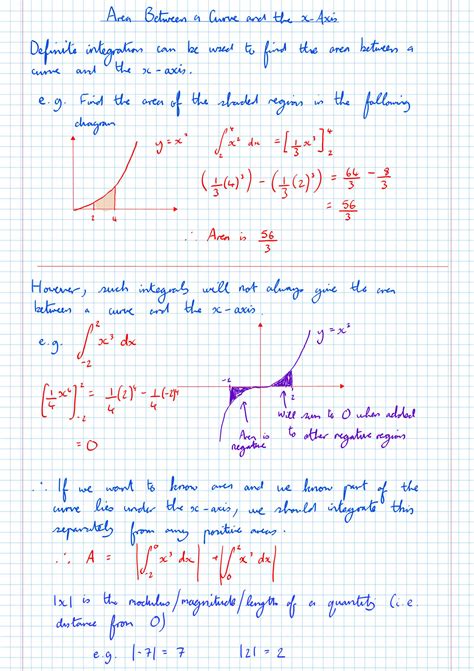 Area Between a Curve and the x-Axis
Definite integration can be used to find the area between a
curve and the x-axis.
e.g. Find the area of the shaded region in the following
diagram
y = x²
2 4
∫₂⁴ x² dx = [1/3 x³]₂⁴
(1/3 (4)³) - (1/3 (2)³) = 64/3 - 8/3
= 56/3
∴ Area is 56/3
However, such integrals will not always give the area
between a curve and the x-axis.
e.g. ∫₋₂² x³ dx
y = x³
-2 2
[1/4 x⁴]₋₂² = 1/4 (2)⁴ - 1/4 (-2)⁴
= 0
Area is
negative
Will sum to 0 when added
to other negative region
∴ If we want to know area and we know part of the
curve lies under the x-axis, we should integrate this
separately from any positive areas.
∴ A = |∫₋₂⁰ x³ dx| + |∫₀² x³ dx|
|x| is the modulus/magnitude/length of a quantity (i.e.
distance from 0)
e.g. |-7| = 7 |2| = 2